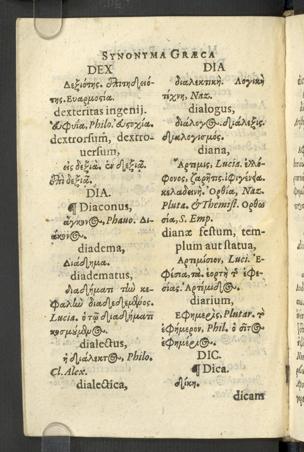 SYNONYMA GRÆCA
DEX
Δεξιότης. ἐπιτηδειό-
της. Εὐαρμοστία.
dexteritas ingenij.
εὐφυΐα, Philo. εὐστοχία.
dextrorsum, dextro-
uersum,
εἰς δεξιά. ἐν δεξιᾷ.
ἐπὶ δεξιά.
DIA.
¶ Diaconus,
Phauo. Διά-
κονος.
diadema,
Διάδημα.
diadematus,
διαδήματι τὴν κε-
φαλὴν διαδεδεμένος.
Lucia. ὁ τῷ διαδήματι
dialectus,
ἡ διάλεκτος, Philo.
Cl. Alex.
dialectica,
DIA
διαλεκτική. Λογικὴ
τέχνη. Naz.
dialogus,
διάλογος. διάλεξις.
διαλογισμός.
diana,
Ἄρτεμις, Lucia. ἐλα-
φόνος,
κελαδεινή. Ὀρθία, Naz.
Pluta. & Themist. Ὀρθω
σία, S. Emp.
dianæ festum, tem-
plum aut statua,
Ἀρτεμίσιον, Luci. Ἐ-
φέσια. τὰ. ἑορτὴ τ ἐφε-
σίας Ἀρτέμιδος.
diarium,
Ἐφημερὶς, Plutar. τὸ
ἐφήμερον, Phil. ὁ
ἐφημέριος.
DIC.
¶ Dica.
δίκη.
dicam